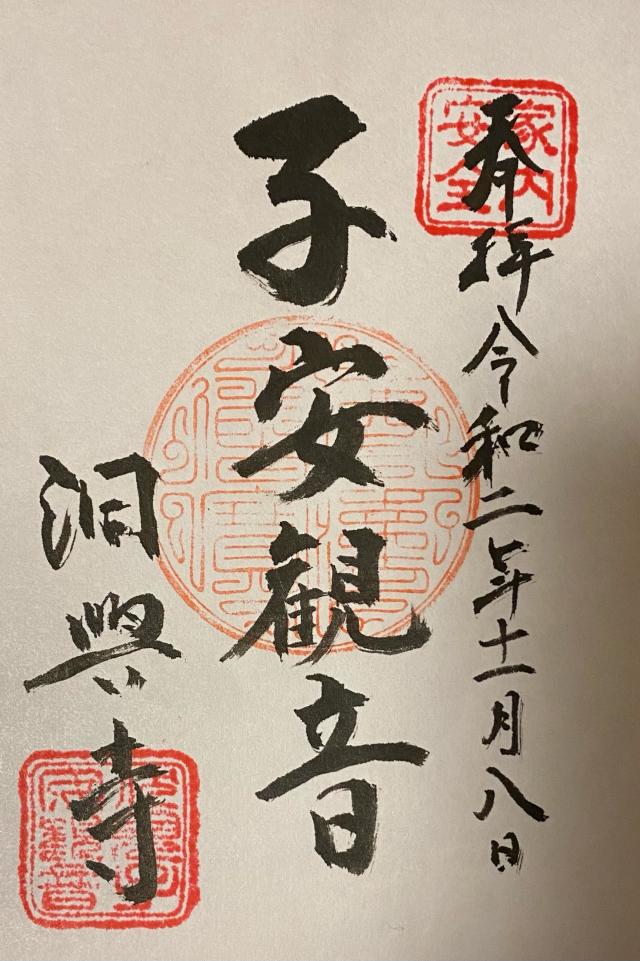 奉拝 令和二年十一月八日
家内安全
子安観音
洞興寺